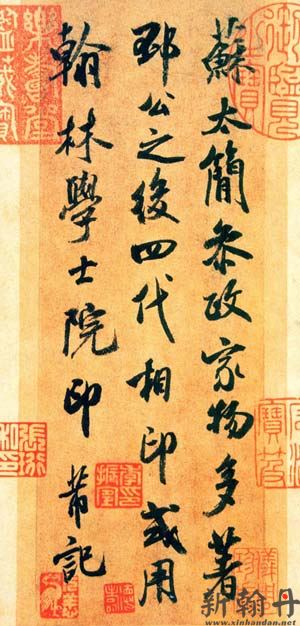 蘇太簡參政家物多著
邳公之後四代相印或用
翰林學士院印 芾記
新翰丹
www.xinhandan.net